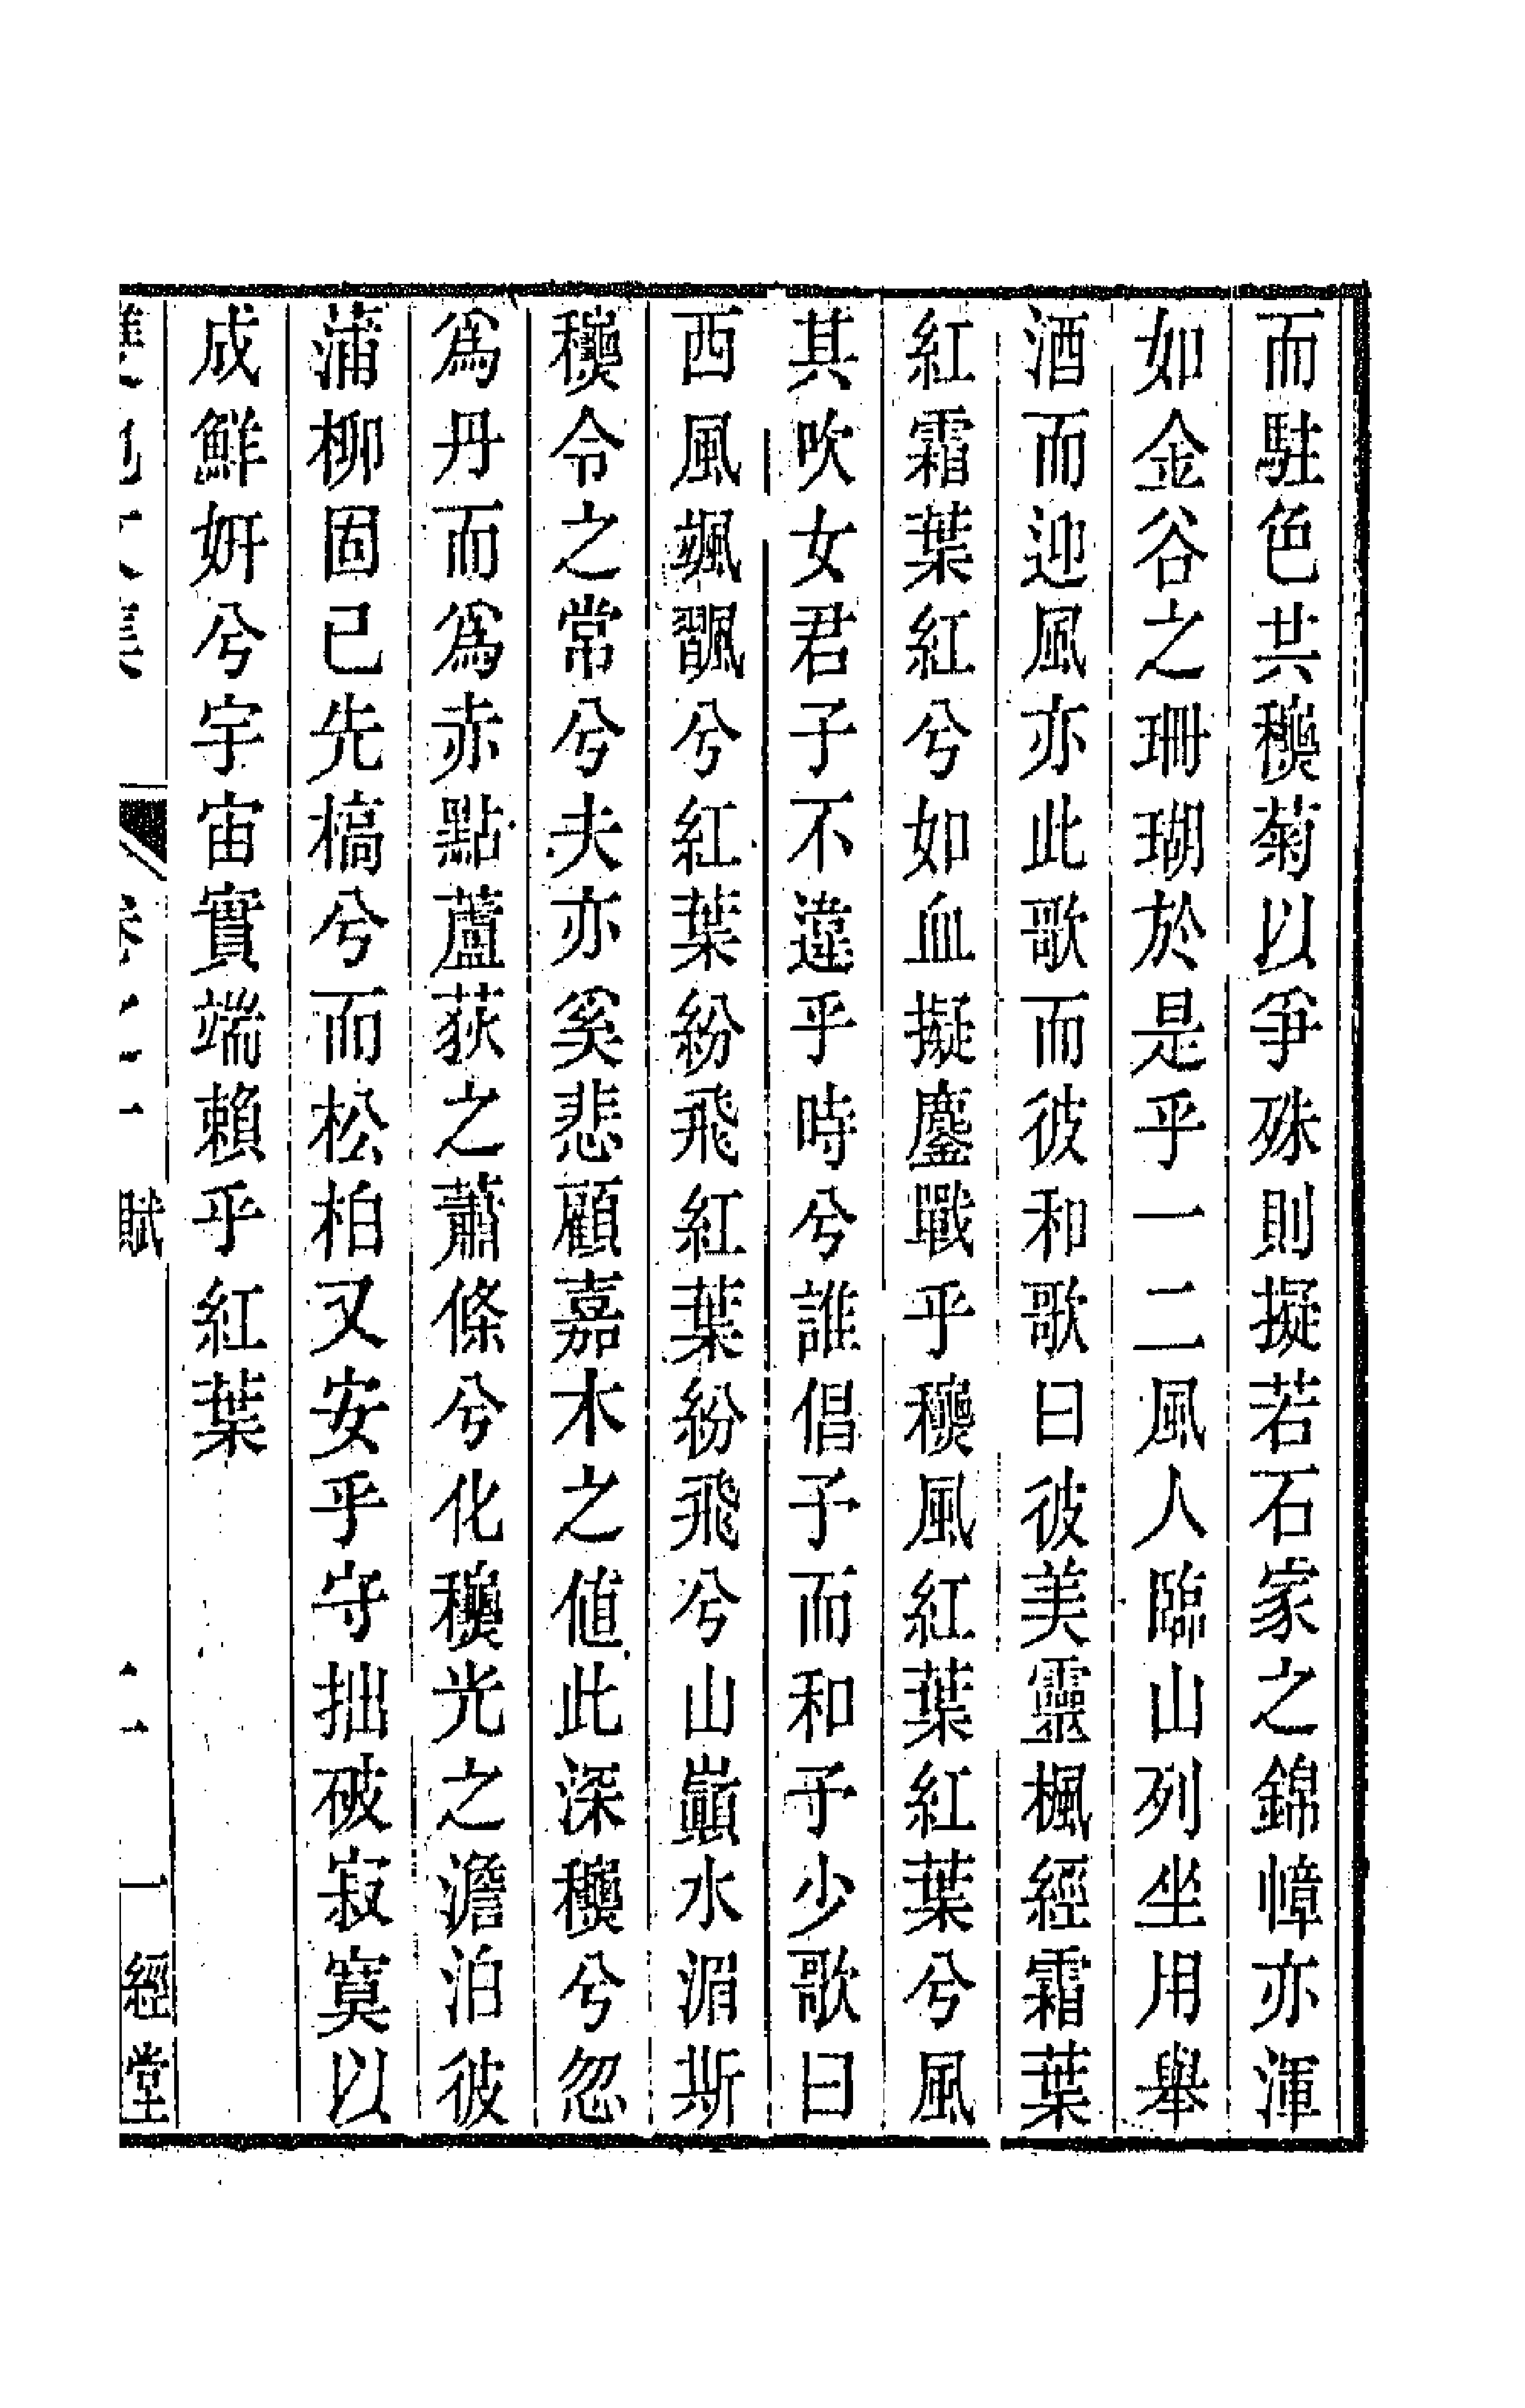 而駐色共穐菊以爭殊則擬若石家之錦幛亦渾
如金谷之珊瑚於是乎一二風人臨山列坐用舉
酒而迎風亦此歌而彼和歌曰彼美靈楓經霜葉
紅霜葉紅兮如血擬鏖戰乎穐風紅葉紅葉兮風
其吹女君子不違乎時兮誰倡予而和予少歌曰
西風颯飁兮紅葉紛飛紅葉紛飛兮山巔水湄斯
穐令之常兮夫亦奚悲顧嘉木之値此深穐兮忽
爲丹而爲赤點蘆荻之蕭條兮化穐光之澹泊彼
蒲柳固已先槁兮而松柏又安乎守拙破寂寞以
成鮮妍兮宇宙實端賴乎紅葉
集 賦 一經堂